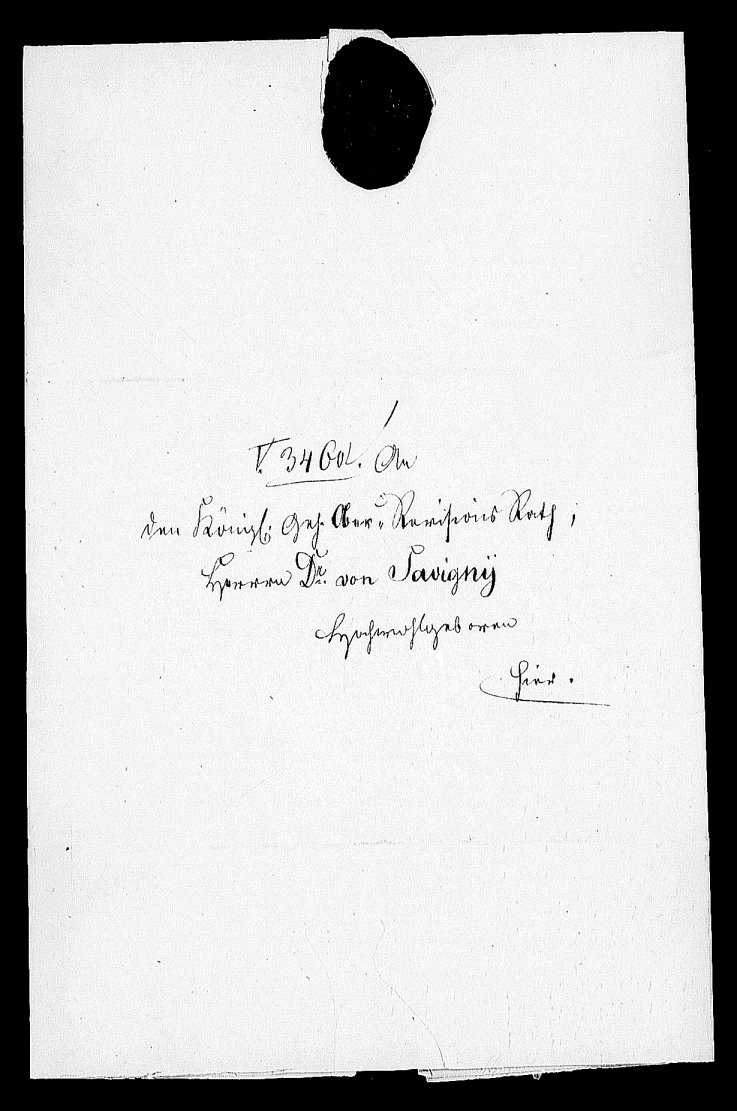 V. 3460. An
den Königl. Geh. Ober-Revisions Rath,
Herrn Dr. von Savigny
Hochwohlgeboren
hier.